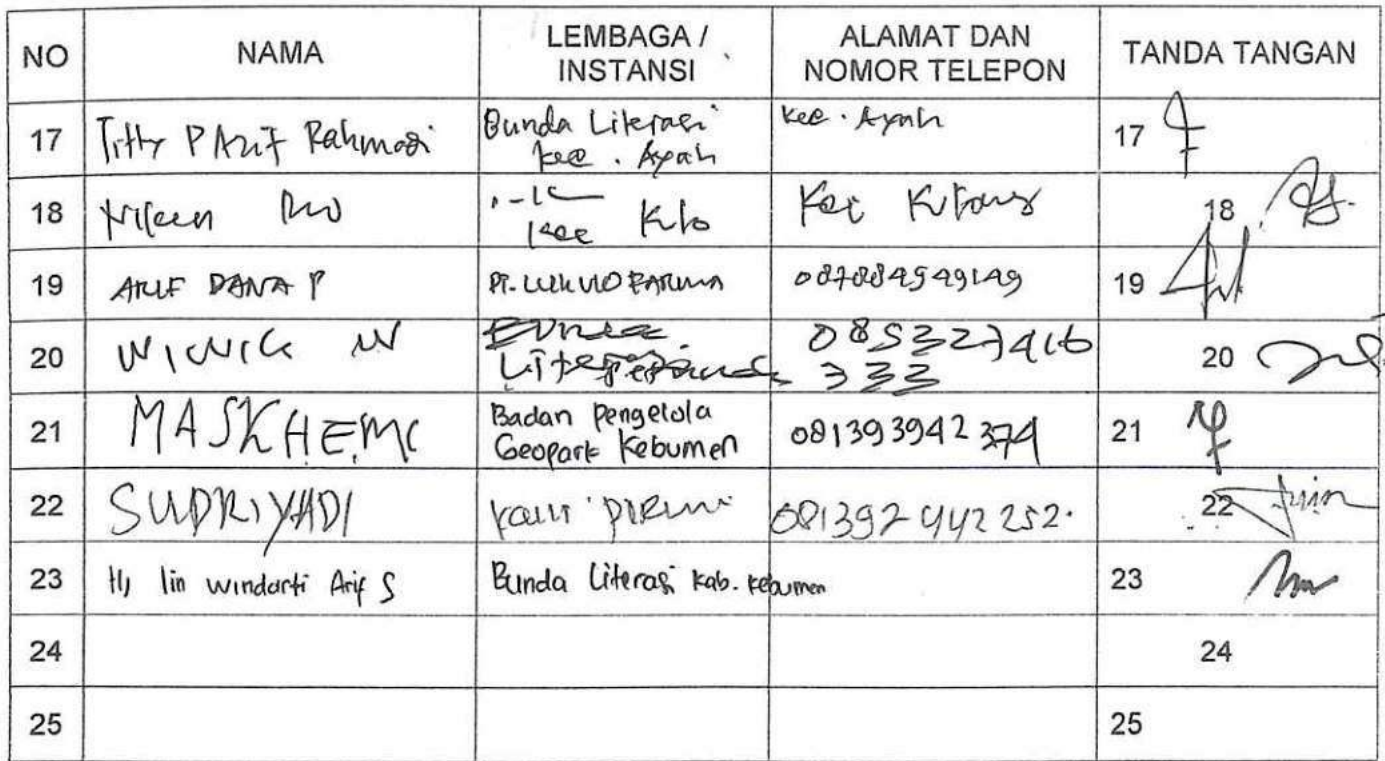 NO NAMA LEMBAGA / INSTANSI ALAMAT DAN NOMOR TELEPON TANDA TANGAN
17 Titty P Arif Rahmadi Bunda Literasi Kec. Ayah Kec. Ayah 17
18 Kec Kec 18
19 ARIF DANA P 087884949149 19
20 WIWIK W 085327416 333 20
21 MASKHEMI Badan Pengelola Geopark Kebumen 081393942374 21
22 SUDRIYADI 081392442252. 22
23 Hj Iin Windarti Arif S Bunda Literasi Kab. Kebumen 23
24 24
25 25